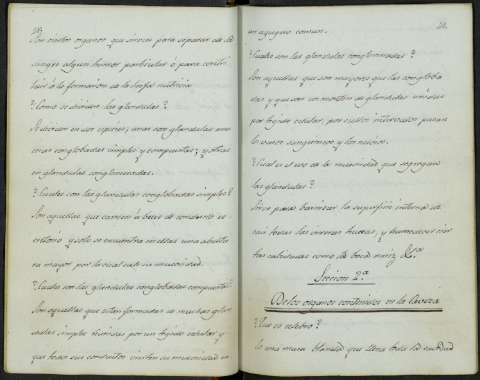 Son ciertos organos que sirven para separar de la
sangre algun humor particular o para contri
buir á la formacion de la linfa nutricia
? Como se dividen las glandulas?
Se dividen en dos especies; unas son glandulas
conglobadas simples y compuestas; y otras
en glandulas conglomeradas.
? Cuales son las glandulas conglobadas simples?
Son aquellas que carecen de
y solo se encuentra en ellas una abertu
ra mayor por la cual sale su mucosidad.
? Cuales son las glandulas conglobadas compuestas?
Son aquellas que estan formadas de muchas glan
dulas simples unidas por un tegido celular y
que todos sus conductos vierten su mucosidad en
un agugero comun.
? Cuales son las glandulas conglomeradas?
Son aquellas que son mayores que las congloba
das y que son un monton de glandulas unidas
por tegido celular, por cuyos intervalos pasan
los vasos sanguineos y los nervios.
? Cual es el uso de la mucosidad que segregan
las glandulas?
Sirve para barnizar la superficie interna de
casi todas las visceras huecas, y humedecer cier
tas cabidades como la boca nariz &.ª
Seccion 2.ª
De los organos contenidos en la Cabeza
? Que es celebro?
Es una masa blanda que llena toda la cavidad